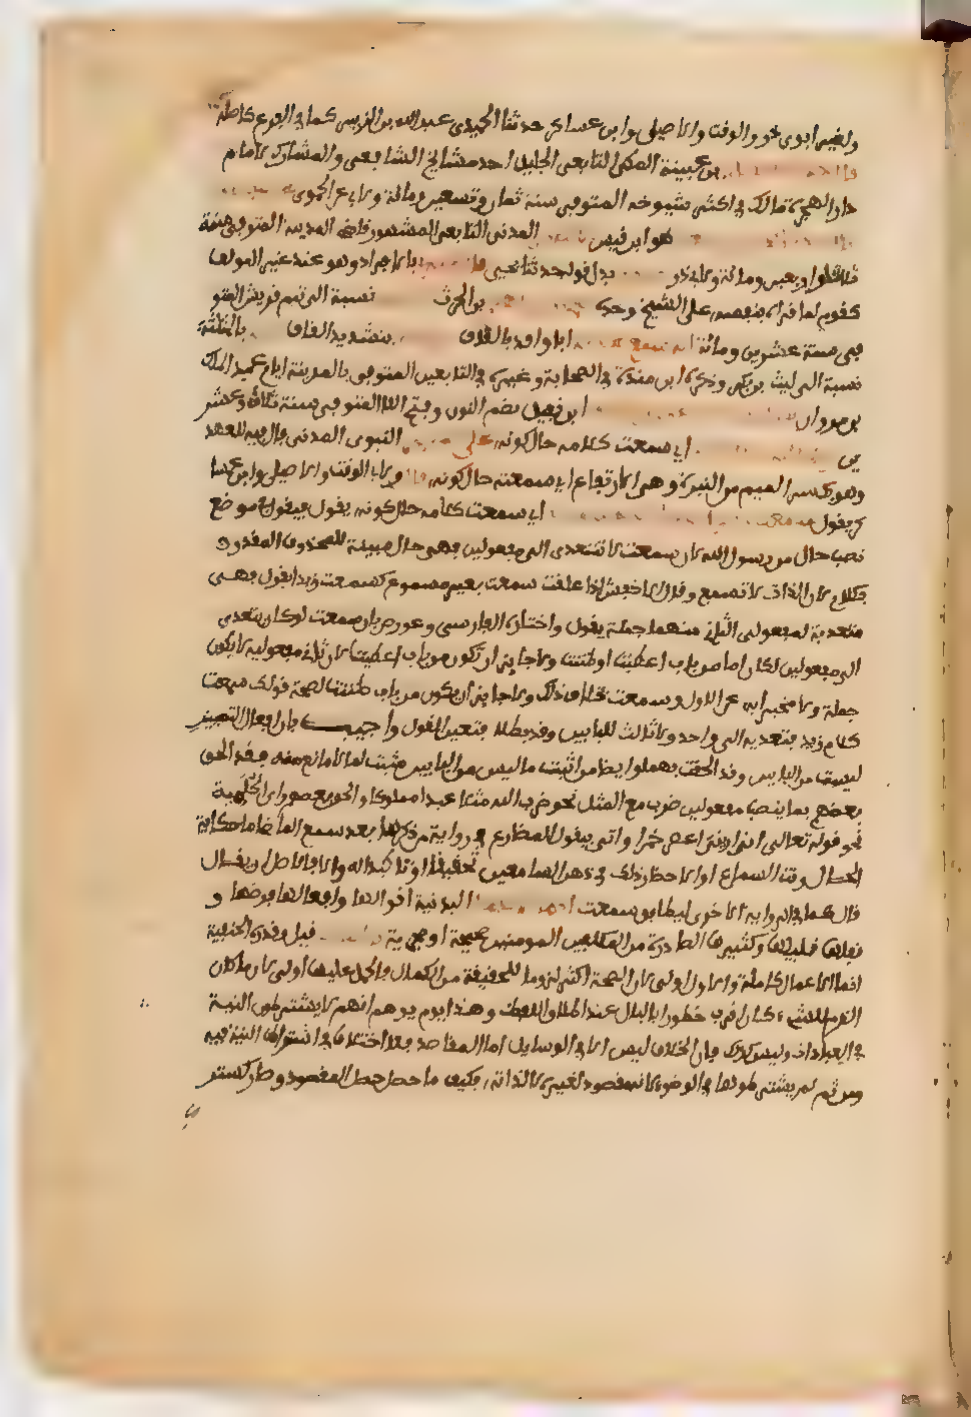 ولغير ابوي ذر والوقت والاصيلي وابن عساكر حدثنا الحميدي عبد الله بن الزبير كما في الفرع كاصله
بن عيينة المكي التابعي الجليل احد مشايخ الشافعي والمشارك لامام
دار الهجرة مالك في اكثر شيوخه المتوفى سنة ثمان وتسعين ومائة ولابي ذر عن الحموي
هو ابن قيس المدني التابعي المشهور قاضي المدينة المتوفى سنة
ثلاث واربعين ومائة ولابي ذر بدل قوله حدثنا يحيى بالافراد وهو عند غير المولف
كقوم لما قراه بنفسه على الشيخ وحده بن الحرث نسبة الى تيم قريش المتو
فى سنة عشرين ومائة انه سمع ابا واقد بالقاف بتشديد القاف بالمثلثة
نسبة الى ليث بن بكر وذكره ابن منده في الصحابة وغيره في التابعين المتوفى بالمدينة ايام عبد الملك
بن مروان ابن نفيل بضم النون وفتح الفا المتوفى سنة ثلاث وعشر
ين اي سمعت كلامه حال كونه على النبوي المدني فال فيه للعهد
وهو بكسر الميم من النبرة وهي الارتفاع اي سمعته حال كونه ولابي الوقت والاصيلي وابن عسا
كر يقول اي سمعت كلامه حال كونه يقول فيقول في موضع
نصب حال من رسول الله لان سمعت لا تتعدى الى مفعولين فهي حال مبينة للمحذوف المقدر
بكلام لان الذات لا تسمع وقال الاخفش اذا علقت سمعت بغير مسموع كسمعت زيدا يقول فهى
متعدية لمفعولين الثاني منهما جملة يقول واختاره الفارسي وعورض بان سمعت لو كان يتعدى
الى مفعولين لكان اما من باب اعطيت او ظننت ولا جايز ان تكون من باب اعطيت لان ثاني مفعوليه لا يكون
جملة ولا مخبرا به عن الاول وسمعت بخلاف ذلك ولا جايز ان يكون من باب ظننت لصحة قولك سمعت
كلام زيد فتعديه الى واحد ولا ثالث للبابين وقد بطلا فتعين القول واجيب بان افعال التصيير
ليست من البابين وقد الحقت بهما وايضا من اثبت ما ليس من البابين مثبت لما لا مانع منه فقد الحق
بعضهم بما ينصب مفعولين ضرب مع المثل نحو ضرب الله مثلا عبدا مملوكا والحق بعضهم راى الحلمية
نحو قوله تعالى انى ارينى اعصر خمرا واتى بيقول المضارع في رواية من ذكرها بعد سمع الماضى اما حكاية
لحال وقت السماع او لاحضار ذلك في ذهن السامعين تحقيقا او تاكيدا له والا فالاصل ان يقال
قال كما في الرواية الاخرى ليطابق سمعت البدنية اقوالها وافعالها فرضها و
نفلها قليلها وكثيرها الصادرة من المكلفين المومنين صحيحة او مجزية قيل وقدره الحنفية
انما الاعمال كاملة والاول اولى لان الصحة اكثر لزوما للحقيقة من الكمال فالحمل عليها اولى لان ما كان
الزم للشيء كان اقرب خطورا بالبال عند اطلاق اللفظ وهذا يوهم انهم لا يشترطون النية
في العبادات وليس كذلك فان الخلاف ليس الا في الوسايل اما المقاصد فلا اختلاف في اشتراط النية فيه
ومن ثم لم يشترطوها في الوضوء لانه مقصود لغيره لا لذاته فكيف ما حصل حصل المقصود وصار كستر